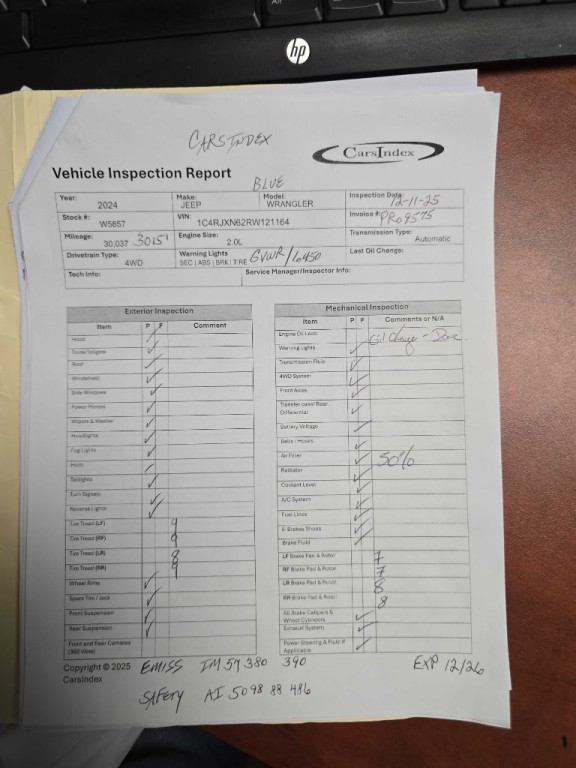 hp
CARSINDEX
CarsIndex
Vehicle Inspection Report
BLUE
Year: 2024 Make: JEEP Model: WRANGLER Inspection Date: 12-11-25
Stock #: W5657 VIN: 1C4RJXN62RW121164 Invoice #: PRO9575
Mileage: 30,037 30151 Engine Size: 2.0L Transmission Type: Automatic
Drivetrain Type: 4WD Warning Lights SEC | ABS | BRK | TIRE GVWR/6450 Last Oil Change:
Tech Info: Service Manager/Inspector Info:
Exterior Inspection
Item P F Comment
Hood
Trunk/Tailgate
Roof
Windshield
Side Windows
Power Mirrors
Wipers & Washer
Headlights
Fog Lights
Horn
Taillights
Turn Signals
Reverse Lights
Tire Tread (LF) 9
Tire Tread (RF) 9
Tire Tread (LR) 8
Tire Tread (RR)
Wheel Rims
Spare Tire / Jack
Front Suspension
Rear Suspension
Front and Rear Cameras
(360 View)
Mechanical Inspection
Item P F Comments or N/A
Engine Oil Level Oil Change - Done
Warning Lights
Transmission Fluid
4WD System
Front Axles
Transfer case/ Rear
Differential
Battery Voltage
Belts / Hoses
Air Filter 50%
Radiator
Coolant Level
A/C System
Fuel Lines
E-Brakes Shoes
Brake Fluid
LF Brake Pad & Rotor 7
RF Brake Pad & Rotor 7
LR Brake Pad & Rotor 8
RR Brake Pad & Rotor 8
All Brake Calipers &
Wheel Cylinders
Exhaust System
Power Steering & Fluid If
Applicable
Copyright © 2025 EMISS IM 59 380 390 EXP 12/26
CarsIndex
SAFETY AI 5098 88 486